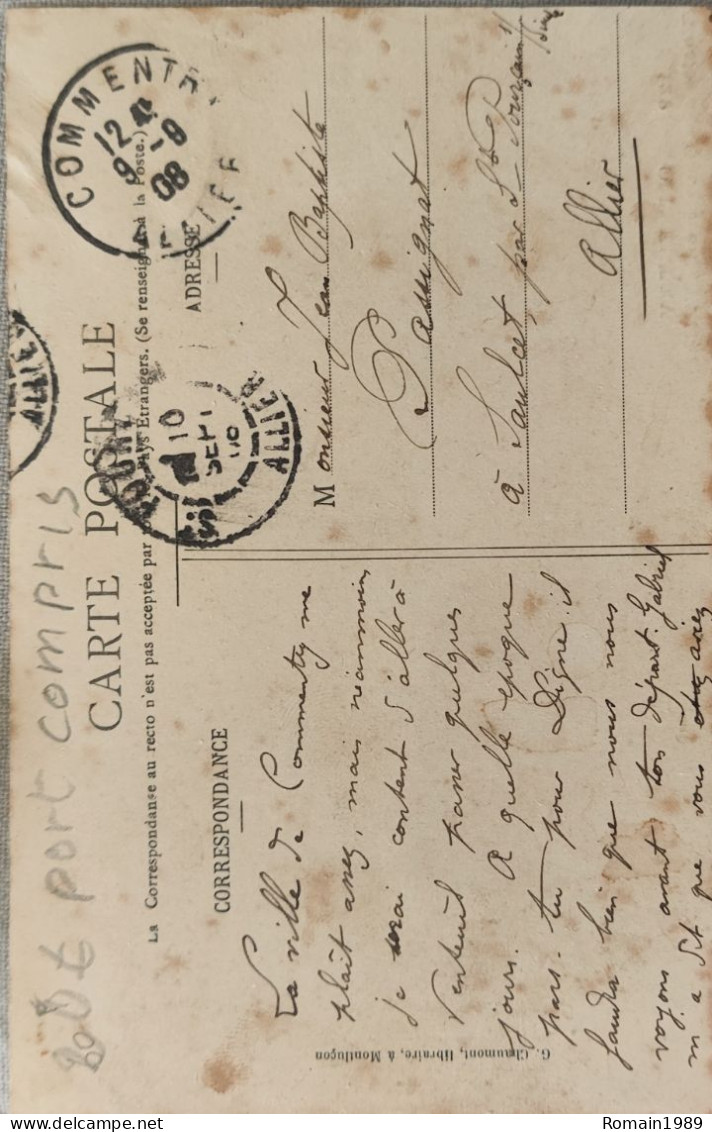 80€ port compris
CARTE POSTALE
La Correspondanse au recto n'est pas acceptée par Pays Etrangers. (Se renseigner à la Poste.)
CORRESPONDANCE
ADRESSE
COMMENTRY
12
9 - 9
08
ALLIER
10
SEPT
08
ALLIER
ALLIER
La ville de Commentry me
plaît assez, mais néanmoins
je serai content d'aller à
Venteuil passer quelques
jours. A quelle époque
pars-tu pour Digne. il
faudra bien que nous nous
voyons avant ton départ. Gabriel
m'a dit que vous aviez
Monsieur Jean Baptiste
à Saulcet, par St Pourçain s/ Sioule
Allier
G. Chaumont, libraire, à Montluçon
delcampe.net
Romain1989